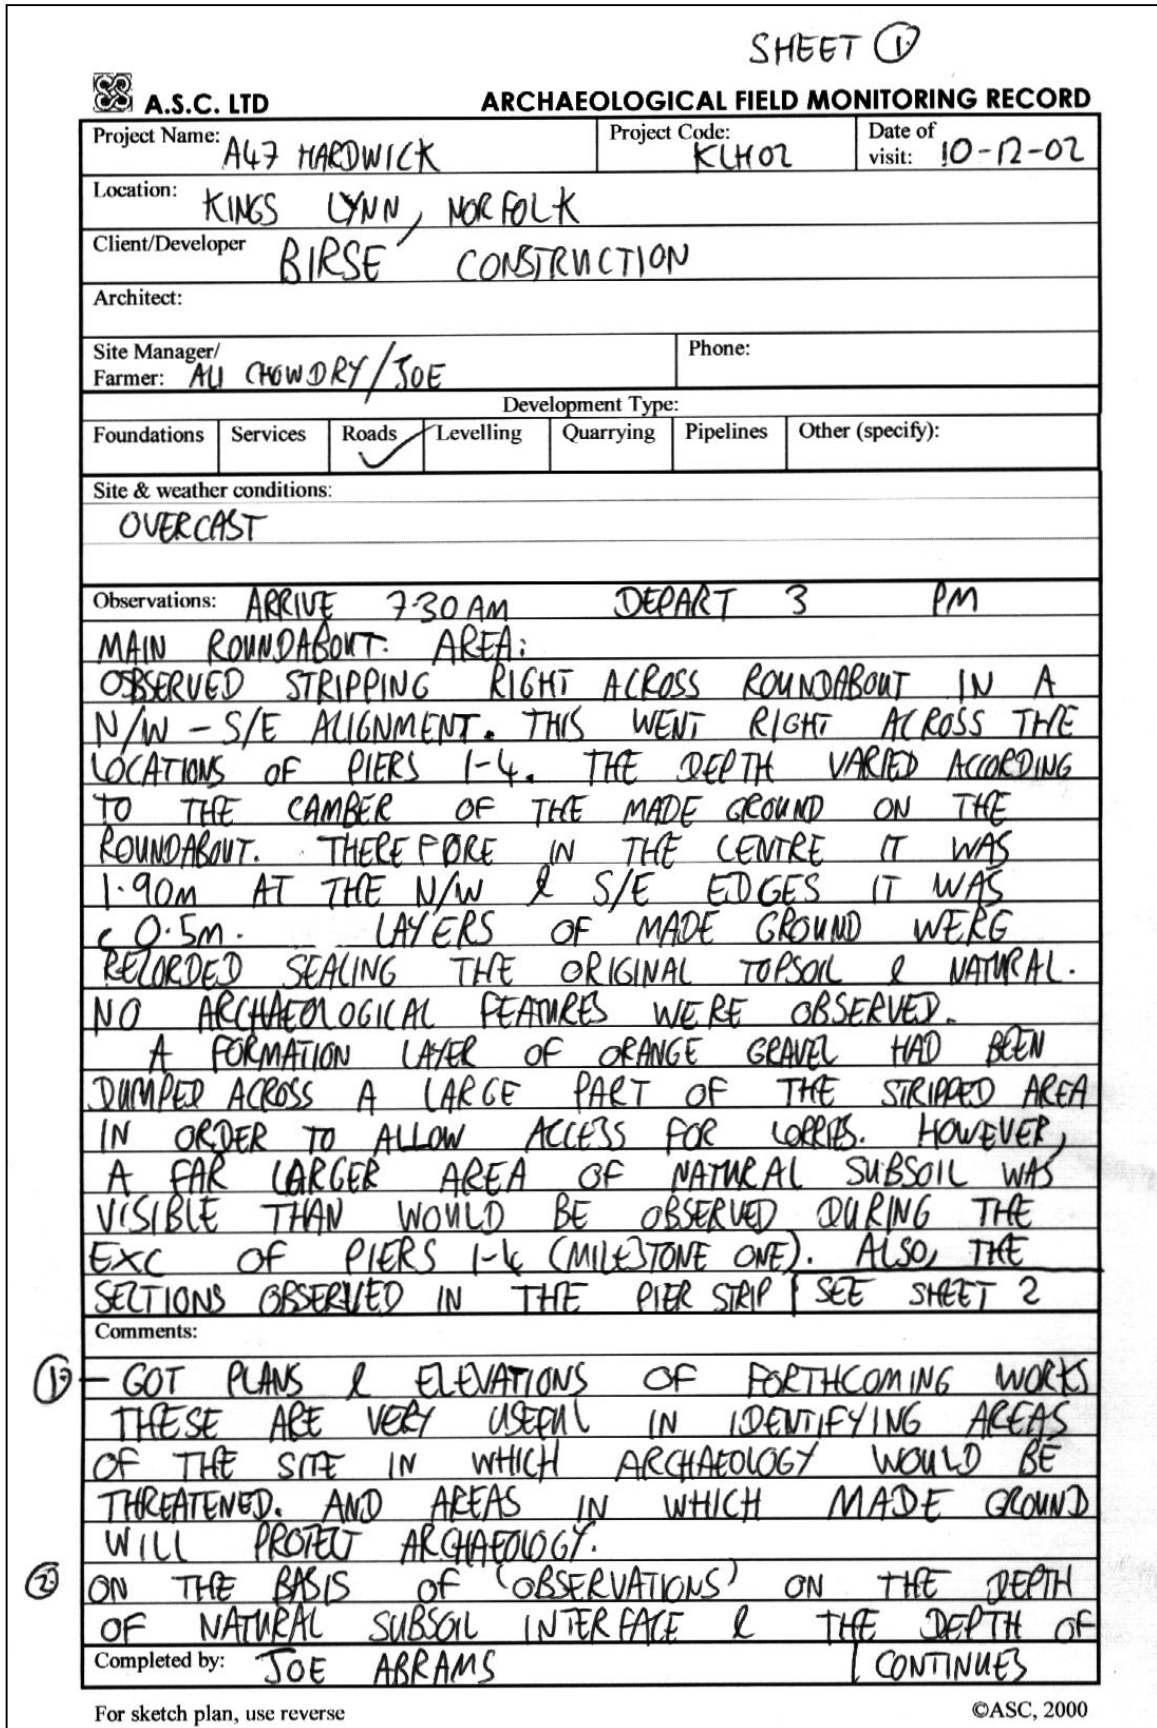 SHEET ①
A.S.C. LTD ARCHAEOLOGICAL FIELD MONITORING RECORD
Project Name: A47 HARDWICK Project Code: KLH02 Date of visit: 10-12-02
Location: KINGS LYNN, NORFOLK
Client/Developer BIRSE CONSTRUCTION
Architect:
Site Manager/ Farmer: ALI CHOWDRY/JOE Phone:
Development Type:
Foundations Services Roads ✓ Levelling Quarrying Pipelines Other (specify):
Site & weather conditions:
OVERCAST
Observations: ARRIVE 7.30 AM DEPART 3 PM
MAIN ROUNDABOUT. AREA:
OBSERVED STRIPPING RIGHT ACROSS ROUNDABOUT IN A
N/W - S/E ALIGNMENT. THIS WENT RIGHT ACROSS THE
LOCATIONS OF PIERS 1-4. THE DEPTH VARIED ACCORDING
TO THE CAMBER OF THE MADE GROUND ON THE
ROUNDABOUT. THEREFORE IN THE CENTRE IT WAS
1.90m AT THE N/W & S/E EDGES IT WAS
c 0.5m. LAYERS OF MADE GROUND WERE
RECORDED SEALING THE ORIGINAL TOPSOIL & NATURAL.
NO ARCHAEOLOGICAL FEATURES WERE OBSERVED.
A FORMATION LAYER OF ORANGE GRAVEL HAD BEEN
DUMPED ACROSS A LARGE PART OF THE STRIPPED AREA
IN ORDER TO ALLOW ACCESS FOR LORRIES. HOWEVER,
A FAR LARGER AREA OF NATURAL SUBSOIL WAS
VISIBLE THAN WOULD BE OBSERVED DURING THE
EXC OF PIERS 1-4 (MILESTONE ONE). ALSO, THE
SECTIONS OBSERVED IN THE PIER STRIP SEE SHEET 2
Comments:
① - GOT PLANS & ELEVATIONS OF FORTHCOMING WORKS
THESE ARE VERY USEFUL IN IDENTIFYING AREAS
OF THE SITE IN WHICH ARCHAEOLOGY WOULD BE
THREATENED. AND AREAS IN WHICH MADE GROUND
WILL PROTECT ARCHAEOLOGY.
② ON THE BASIS OF (OBSERVATIONS) ON THE DEPTH
OF NATURAL SUBSOIL INTERFACE & THE DEPTH OF
Completed by: JOE ABRAMS CONTINUES
For sketch plan, use reverse ©ASC, 2000